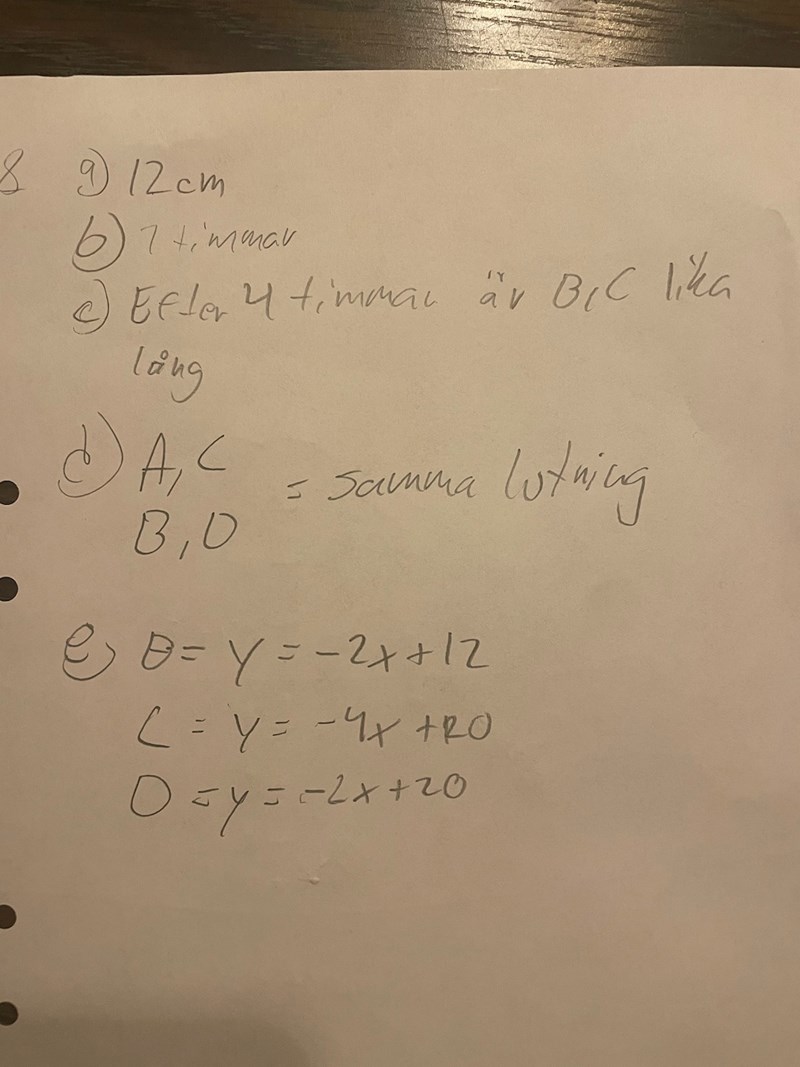 8 a) 12 cm
b) 7 timmar
c) Efter 4 timmar är B, C lika
lång
d) A, C
= samma lutning
B, D
e) B = y = -2x + 12
C = y = -4x + 20
D = y = -2x + 20